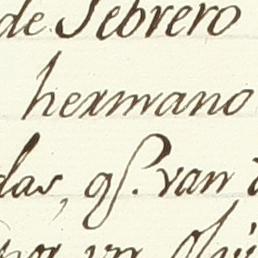 de Febrero
hermano
das, qe. van
por un